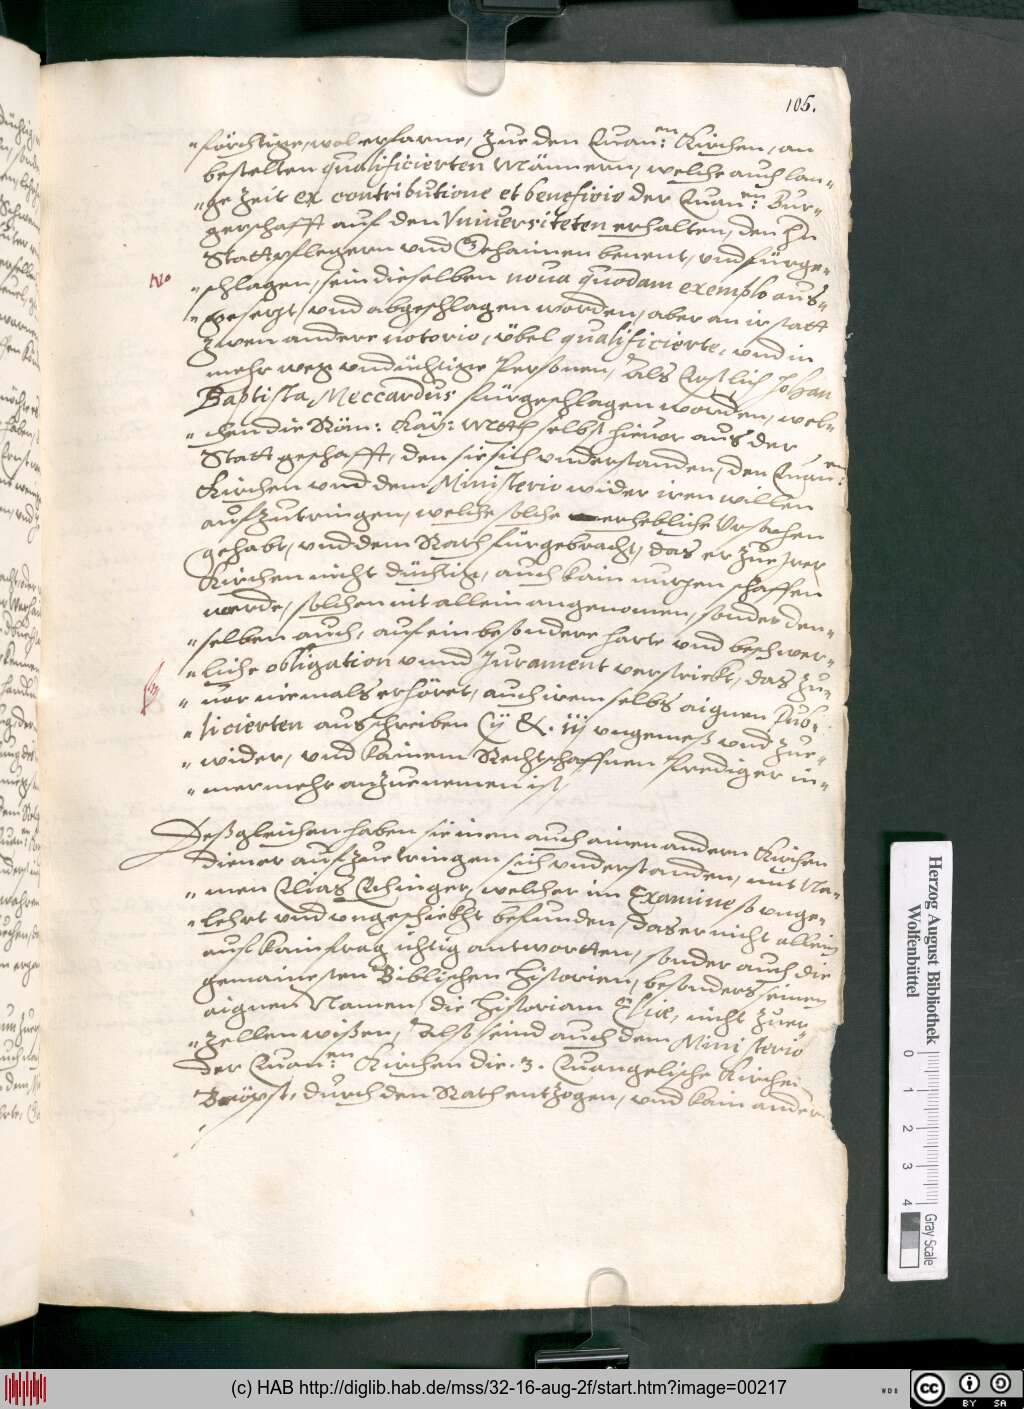 105.
"förchtige, wol erfarne, zue den Euan:en Kirchen, an
bestelten qualificierten Männern, welche auch lan"
"ge Zeit ex contributione et beneficio der Euan:en Bur"
gerschafft auf den Vniuersiteten erhalten, den Hn
Stattpflegern vnd Gehaimen benent, vnd fürge"
No
"schlagen, sein dieselben noua quodam exemplo aus"
"gesezt, vnd abgeschlagen worden, aber an ir statt
zwen andere notorio, vbel qualificierte, vnd in
mehr weg vndüchtige Personen, Als Erstlich Johan
Baptista Meccardus fürgeschlagen worden, wel"
"chen die Röm: Kay: Mtt selbst hieuor aus der
Statt geschafft, den sie sich vnderstanden, den Euan:en
Kirchen vnd dem Ministerio wider iren willen
aufzutringen, welche solche erhebliche Vrsachen
gehabt, vnd dem Rath fürgebracht, das er zue irer
Kirchen nicht düchtig, auch kain nuzen schaffen
werde, solchen nit allein angenomen, sonder den"
"selben auch, auf ein besondere harte vnd beschwer"
"liche obligation vnnd Jurament verstrickt, das zu"
"uor niemals erhöret, auch irem selbs aignen Pub"
"licierten ausschreiben C ij & . iij vngemeß vnd zue"
"wider, vnd kainem Rechtschaffnen Prediger in"
"mermehr anzuenemen ist,
Deßgleichen haben sie inen auch ainen andern Kirchen
Diener aufzuetringen sich vnderstanden, mit Na"
"men Elias Ehinger, welcher im Examine so vnge"
"lehrt vnd vngeschickht befunden, das er nicht allein
auf kain frag ichtig antwortten, sonder auch die
gemainesten Biblischen Historien, besonders seinen
aignen Namen, die Historiam Eliæ, nicht zuer"
"zellen wißen, Alß seind auch dem Ministerio
der Euan:en Kirchen die . 3 . Euangelische Kirchen
Bröpst, durch den Rath entzogen, vnd kain ander
Herzog August Bibliothek
Wolfenbüttel
0 1 2 3 4
Gray Scale
(c) HAB http://diglib.hab.de/mss/32-16-aug-2f/start.htm?image=00217
WDB
cc BY SA